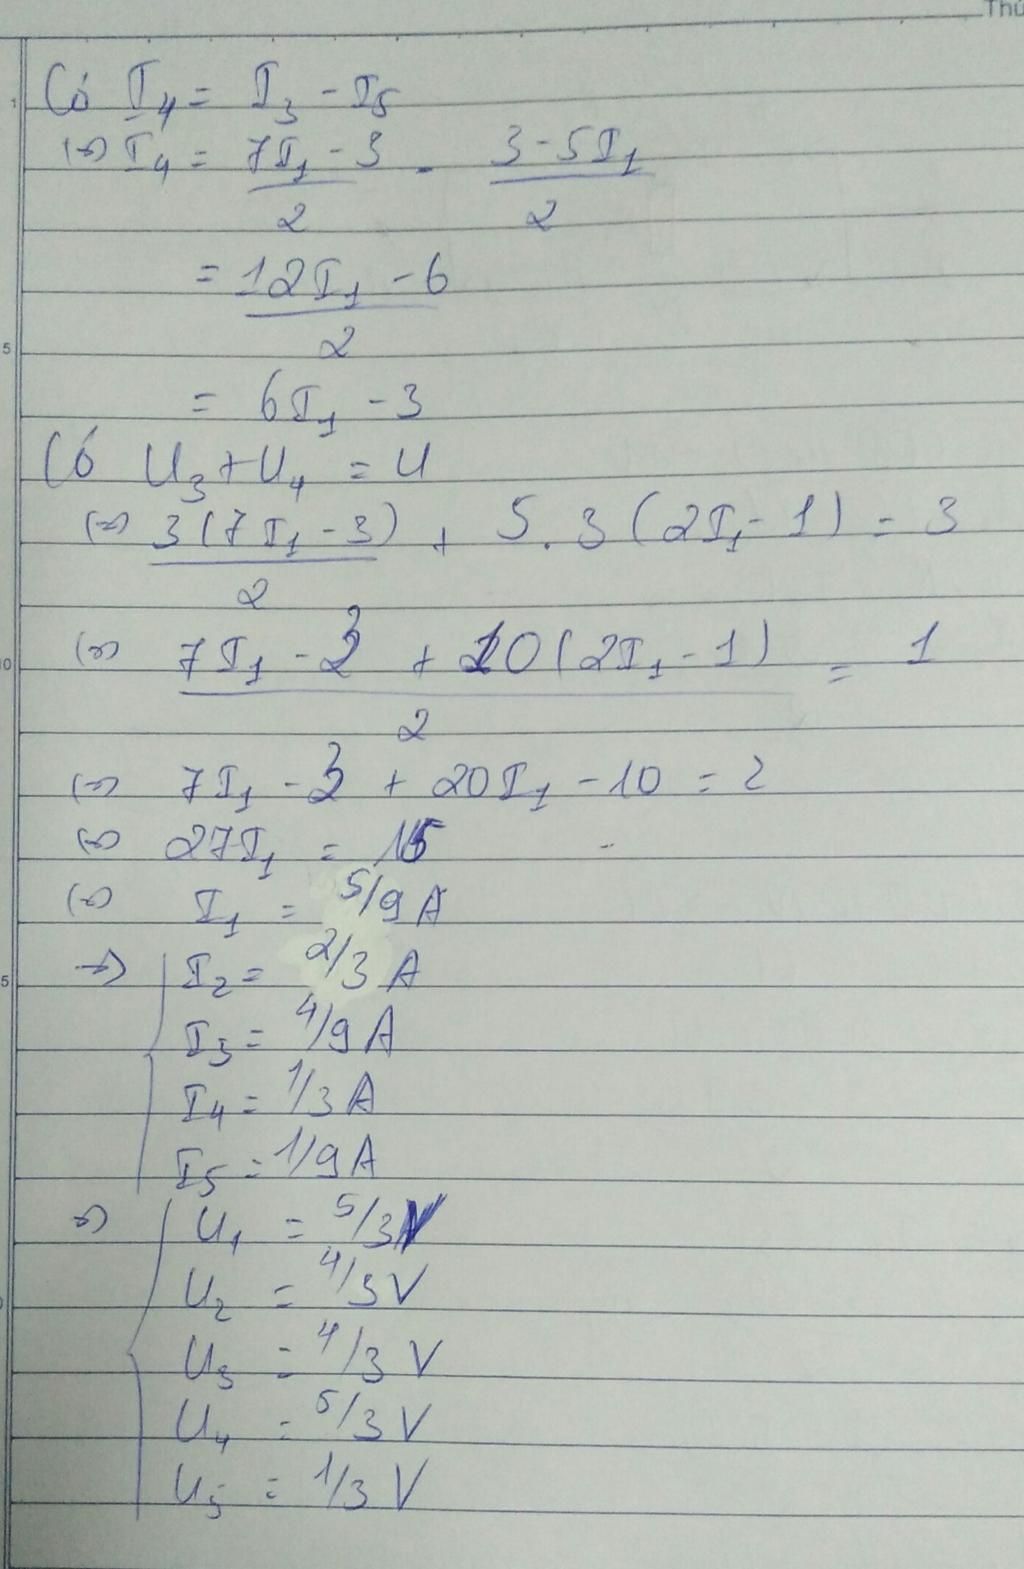 Thứ
Có I4 = I3 - I5
(=>) I4 = (7I1 - 3)/2 - (3 - 5I1)/2
= (12I1 - 6)/2
= 6I1 - 3
Có U3 + U4 = U
(=>) 3(7I1 - 3)/2 + 5.3(2I1 - 1) = 3
(=>) (7I1 - 3 + 10(2I1 - 1))/2 = 1
(=>) 7I1 - 3 + 20I1 - 10 = 2
(=>) 27I1 = 15
(=>) I1 = 5/9 A
=> I2 = 2/3 A
I3 = 4/9 A
I4 = 1/3 A
I5 = 1/9 A
=> U1 = 5/3 V
U2 = 4/3 V
U3 = 4/3 V
U4 = 5/3 V
U5 = 1/3 V